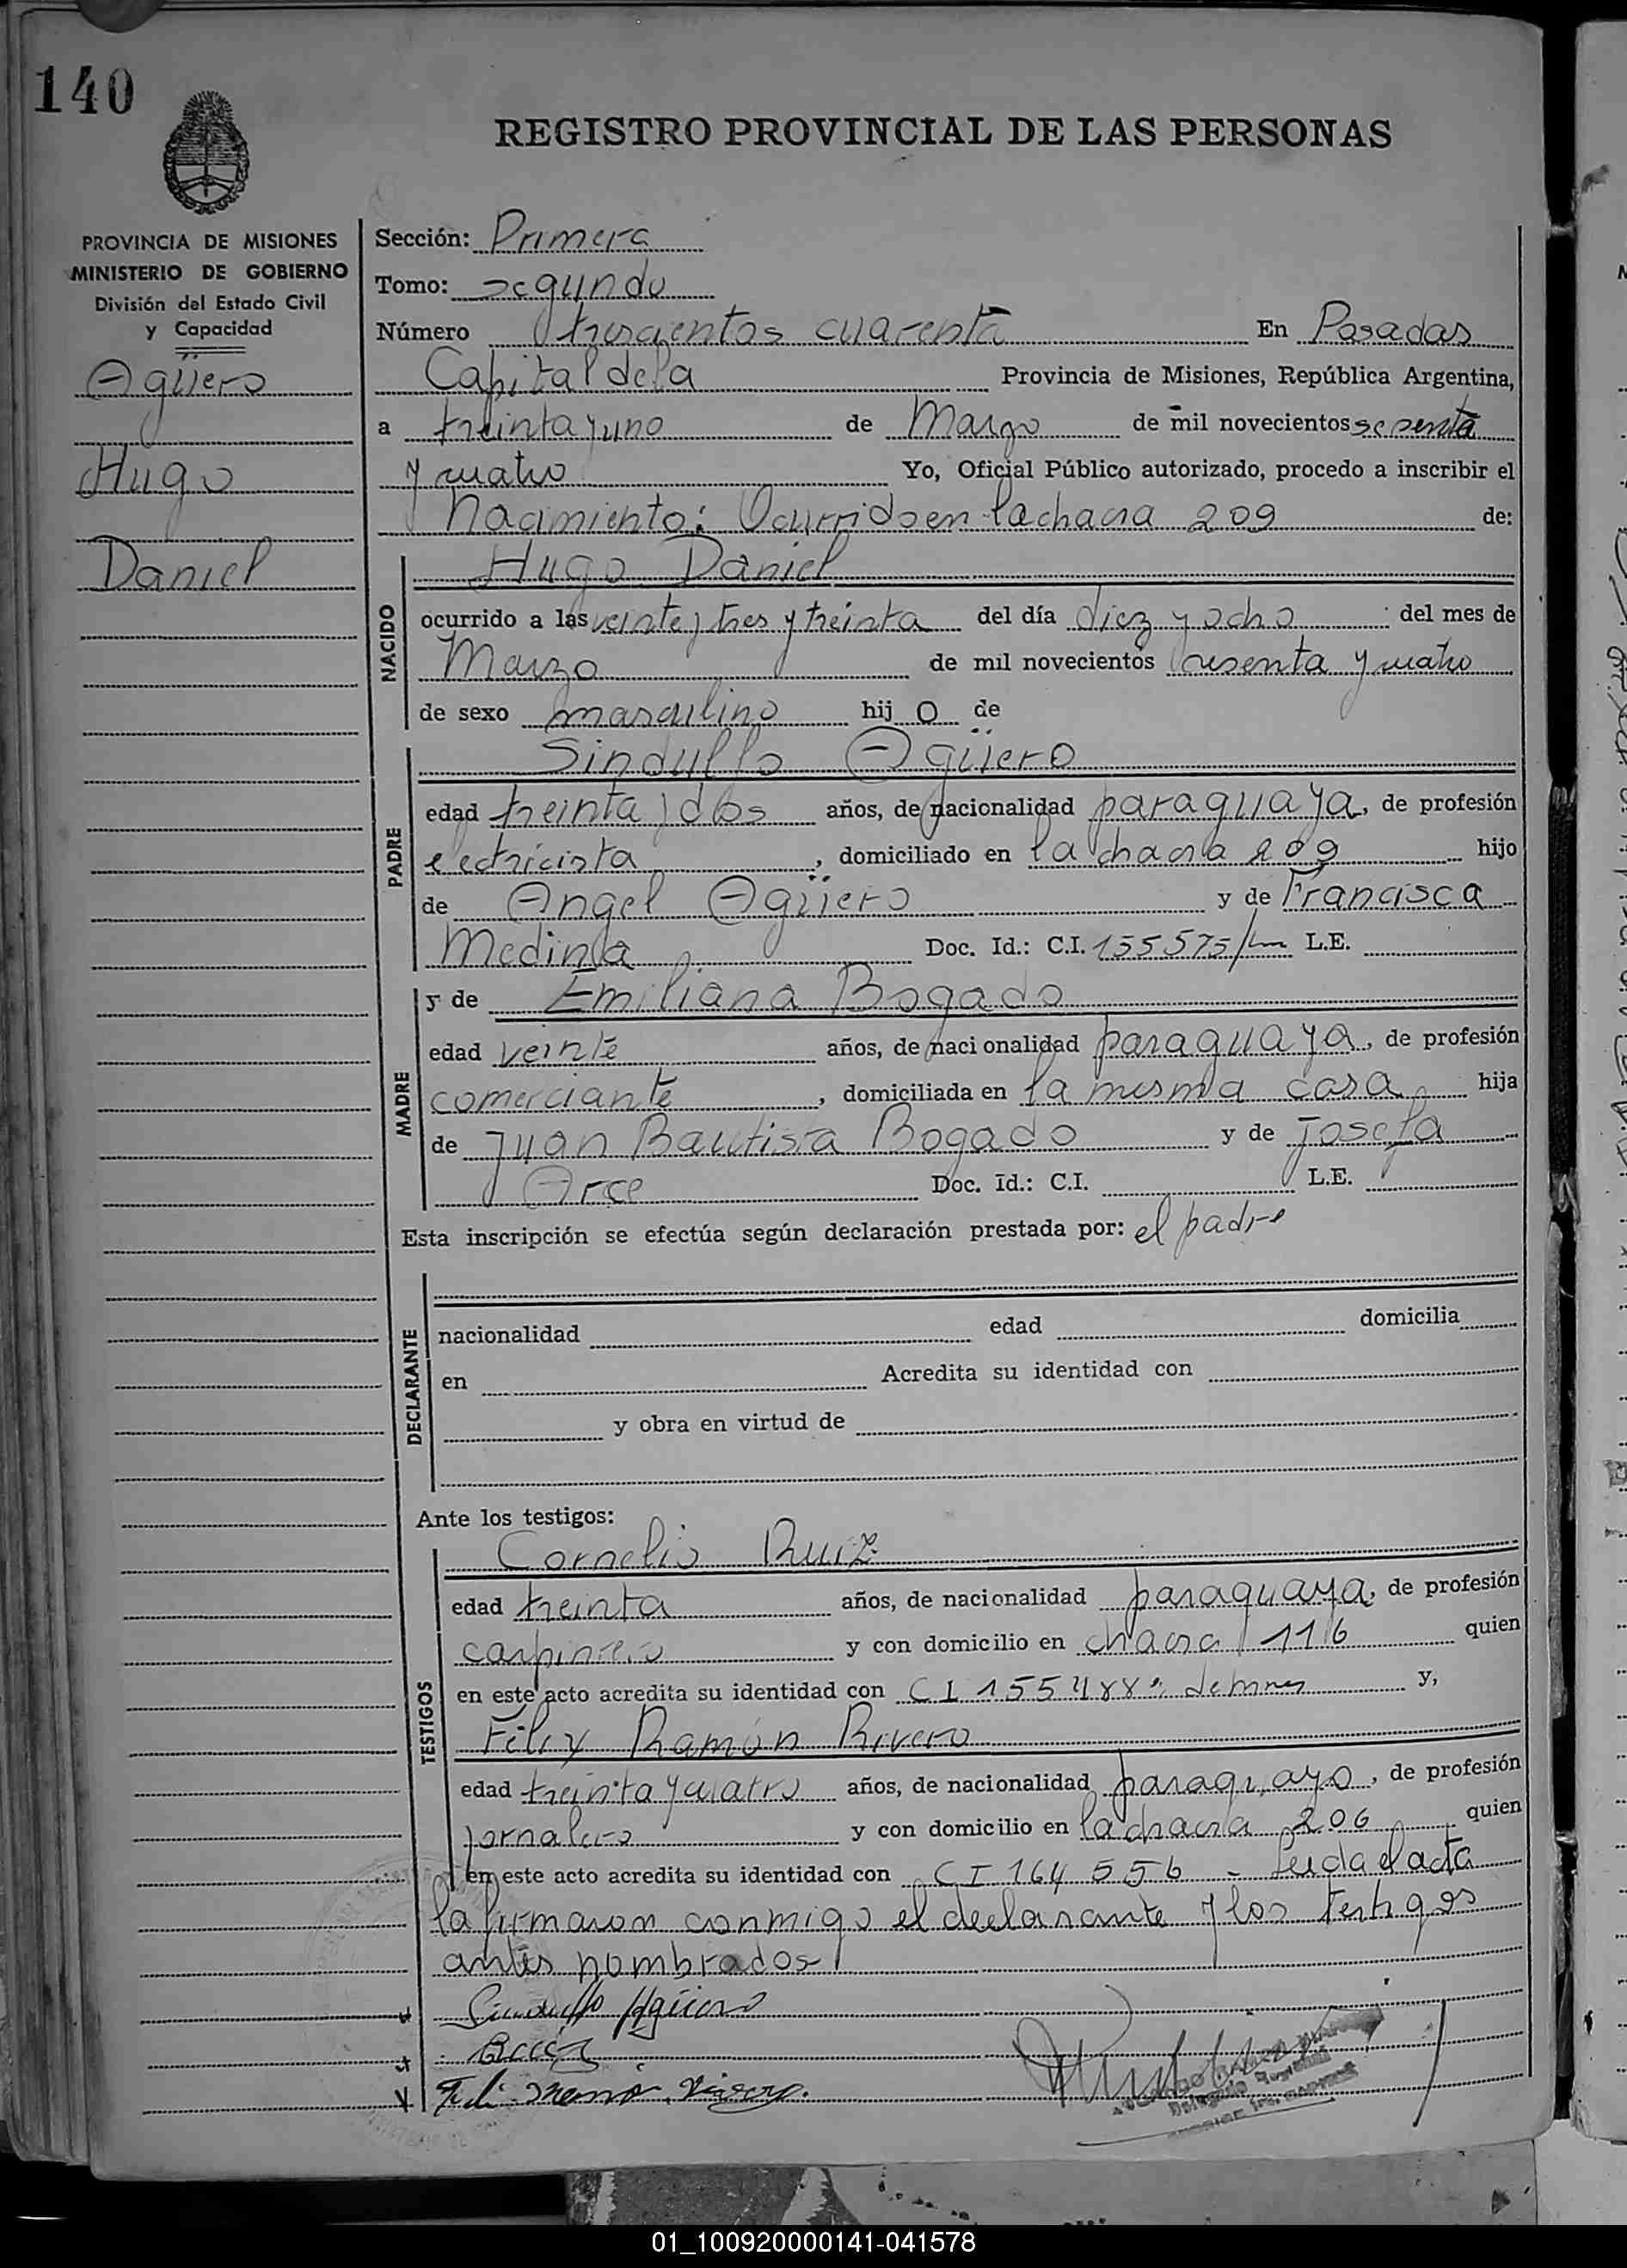 140
REGISTRO PROVINCIAL DE LAS PERSONAS
PROVINCIA DE MISIONES
MINISTERIO DE GOBIERNO
División del Estado Civil
y Capacidad
Agüero
Hugo
Daniel
Sección: Primera
Tomo: segundo
Número trescientos cuarenta En Posadas
Capital de la Provincia de Misiones, República Argentina,
a treinta y uno de Marzo de mil novecientos sesenta
y cuatro Yo, Oficial Público autorizado, procedo a inscribir el
Nacimiento: Ocurrido en la chacra 209 de:
NACIDO
Hugo Daniel
ocurrido a las veinte y tres y treinta del día diez y ocho del mes de
Marzo de mil novecientos sesenta y cuatro
de sexo masculino hij o de
PADRE
Sindulfo Agüero
edad treinta y dos años, de nacionalidad paraguaya, de profesión
electricista, domiciliado en la chacra 209 hijo
de Angel Agüero y de Francisca
Medina Doc. Id.: C.I. 155575 L.E.
MADRE
y de Emiliana Bogado
edad veinte años, de nacionalidad paraguaya, de profesión
comerciante, domiciliada en la misma casa hija
de Juan Bautista Bogado y de Josefa
Arce Doc. Id.: C.I. L.E.
Esta inscripción se efectúa según declaración prestada por: el padre
DECLARANTE
nacionalidad edad domicilia
en Acredita su identidad con
y obra en virtud de
Ante los testigos:
TESTIGOS
Cornelio Ruiz
edad treinta años, de nacionalidad paraguaya, de profesión
carpintero y con domicilio en chacra 116 quien
en este acto acredita su identidad con CI 155488 y,
Félix Ramón Rivero
edad treinta y cuatro años, de nacionalidad paraguayo, de profesión
jornalero y con domicilio en la chacra 206 quien
en este acto acredita su identidad con CI 164556 - Leida el acta
la firmaron conmigo el declarante y los testigos
antes nombrados
Sindulfo Agüero
01_100920000141-041578